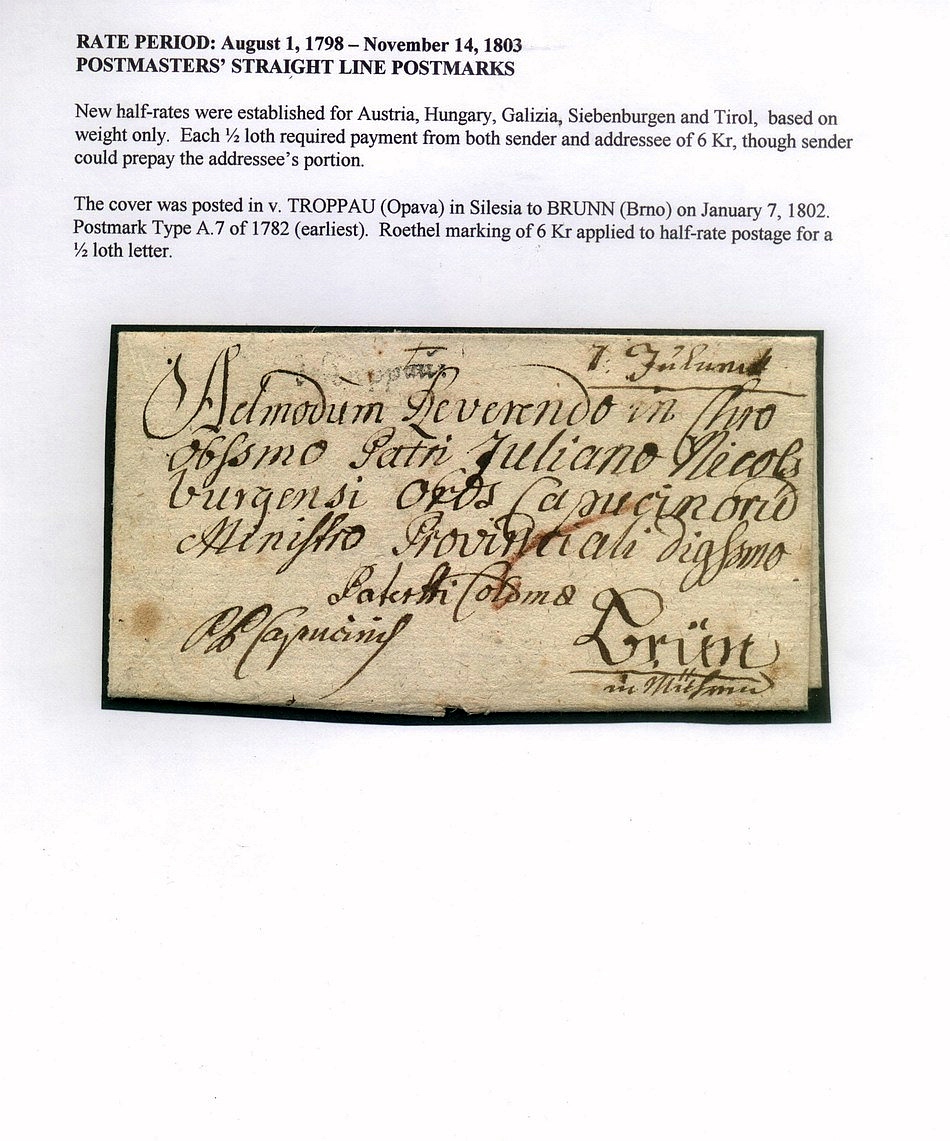 RATE PERIOD: August 1, 1798 – November 14, 1803
POSTMASTERS' STRAIGHT LINE POSTMARKS
New half-rates were established for Austria, Hungary, Galizia, Siebenburgen and Tirol, based on
weight only. Each ½ loth required payment from both sender and addressee of 6 Kr, though sender
could prepay the addressee's portion.
The cover was posted in v. TROPPAU (Opava) in Silesia to BRUNN (Brno) on January 7, 1802.
Postmark Type A.7 of 1782 (earliest). Roethel marking of 6 Kr applied to half-rate postage for a
½ loth letter.
7.
Admodum Reverendo in Chro
obssmo Patri Juliano Nicols
burgensi Ords Capucinorū
Ministro Provinciali digssmo
Colsmo
PP Capucinis
Brün
in